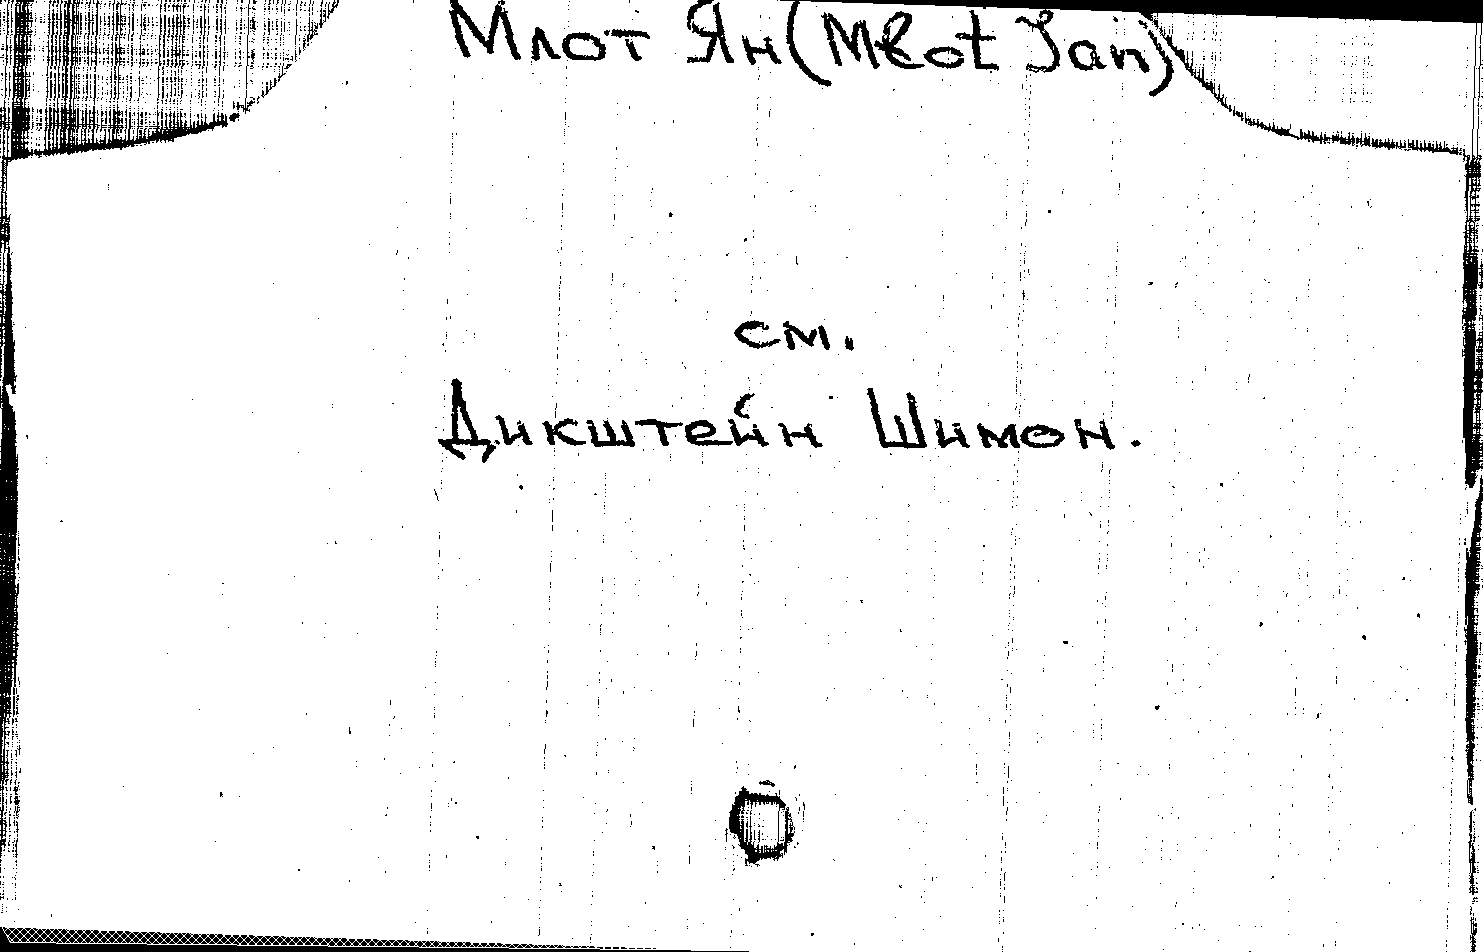 Млот Ян (Młot Jan)
см.
Дикштейн Шимон.